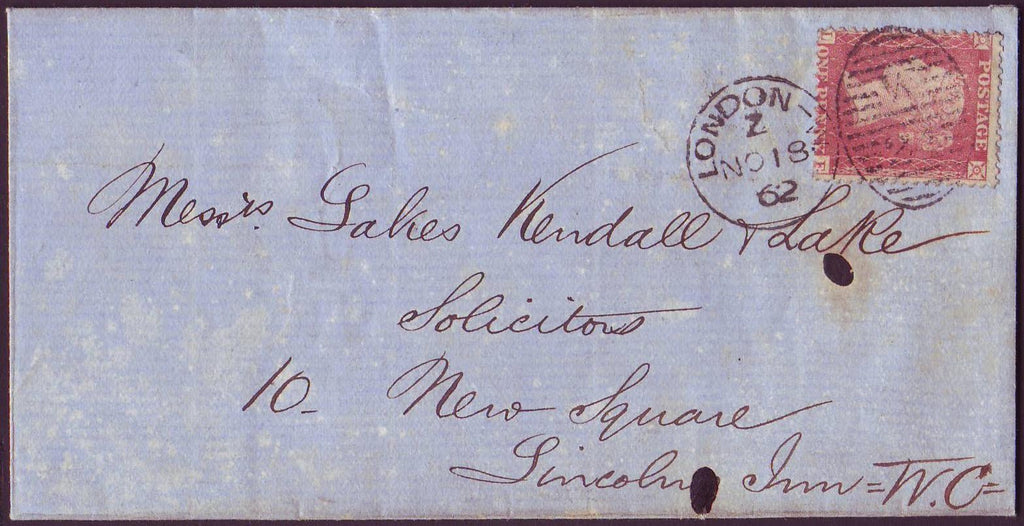 POSTAGE
ONE PENNY
LONDON
Z
NO 18
62
Messrs. Lakes Kendall & Lake
Solicitors
10 - New Square
Lincolns Inn = W.C =